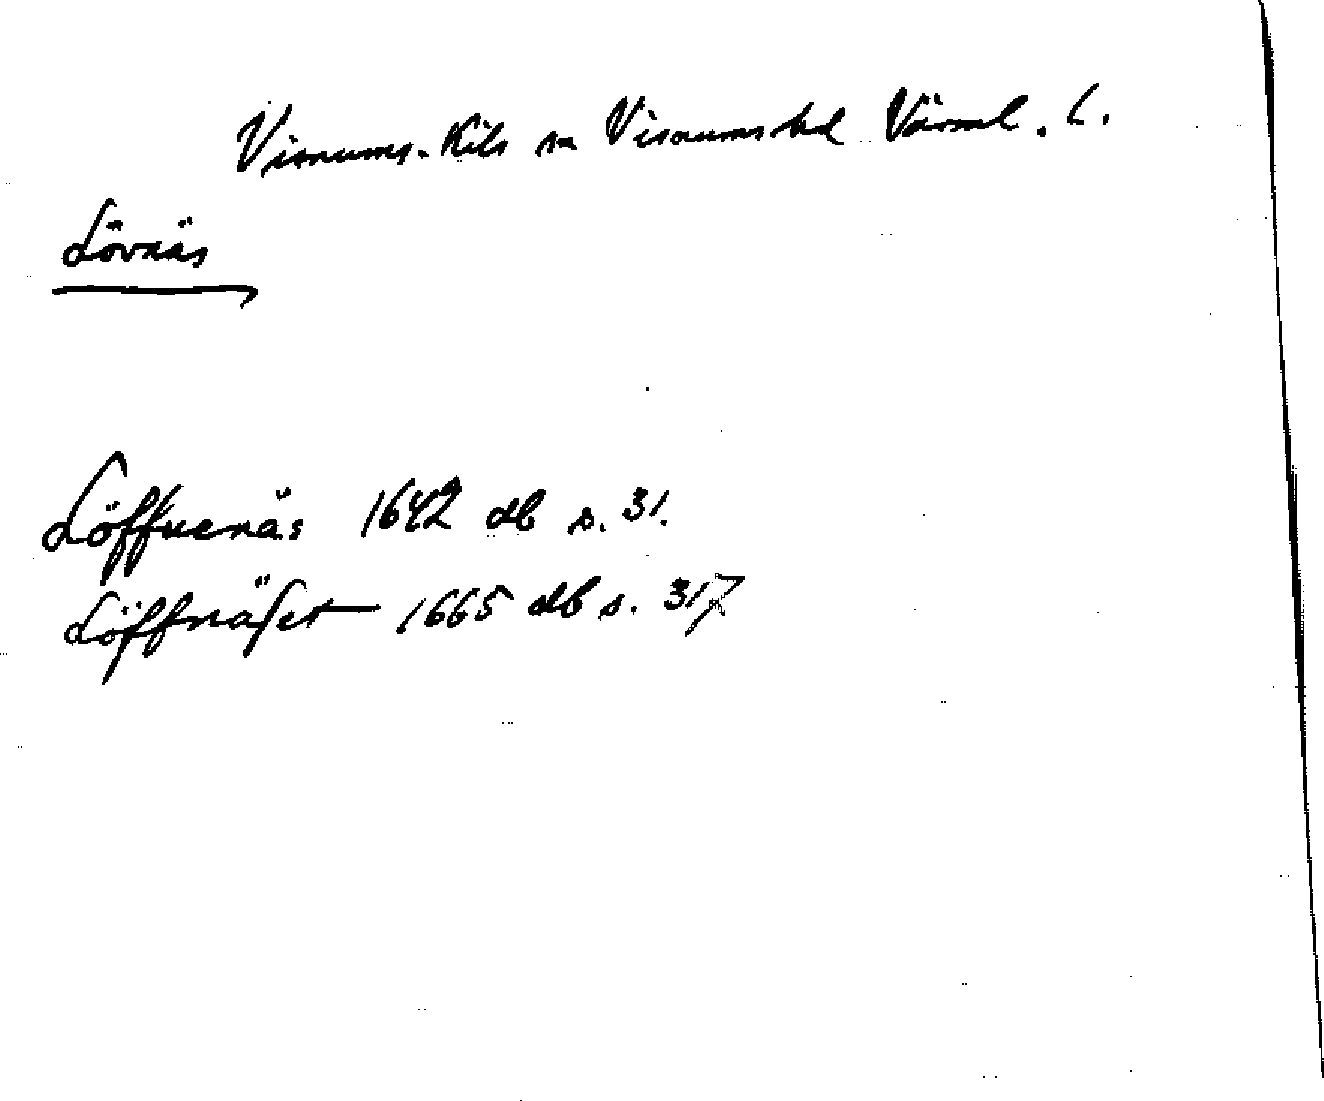 Visnums-Kils sn Visnums hd Värml. l.
Lövnäs
Löffuenäs 1642 db s. 31.
Löffnäset 1665 db s. 317